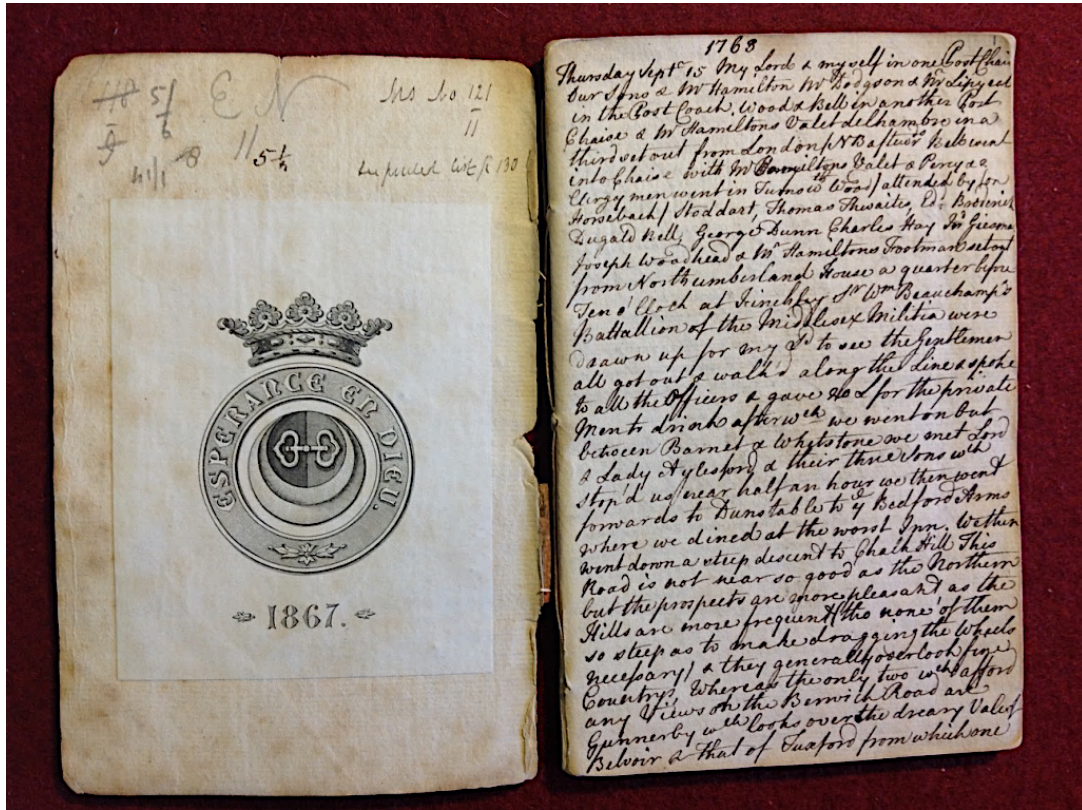 118 5/6 E N Ms No 121/11
9
41/1 8 11 5½
130
ESPERANCE EN DIEU.
1867.
1768
Thursday Sept 15 My Lord & myself in one Post Chaise
Our Sons & Mr Hamilton Mr Dodgson & Mr Lipyeat
in the Post Coach. Wood & Bell in another Post
Chaise & Mr Hamiltons Valet delhambre in a
third set out from London NB afterwds Bell went
into Chaise with Mr Hamiltons Valet & Percy &
Clergymen went in Turns wth Wood) attended by (on
Horseback) Stoddart, Thomas Thwaites, Ed: Broderick
Dugald Bell, George Dunn Charles Hay Jn
Joseph Woodhead & Mr Hamiltons Footman set out
from Northumberland House a quarter before
Ten o'Clock at Finchley Sr Wm Beauchamp's
Battallion of the Middlesex Militia were
drawn up for my Ld to see the Gentlemen
all got out & walk'd along the Line & spoke
to all the Officers & gave 20 £ for the private
Men to drink after wch we went on but
between Barnet & Whetstone we met Lord
& Lady Aylesford & their three Sons wch
stop'd us near half an hour we then went
forwards to Dunstable to ye Bedford Arms
where we dined at the worst Inn. We then
went down a steep descent to Chalk Hill This
Road is not near so good as the Northern
but the prospects are more pleasant as the
Hills are more frequent (tho none of them
so steep as to make dragging the Wheels
necessary) & they generally overlook fine
Countrys, Whereas the only two wch afford
any Views on the Berwick Road are
Gunnerby wch looks over the dreary Vale of
Belvoir & that of Tuxford from which one